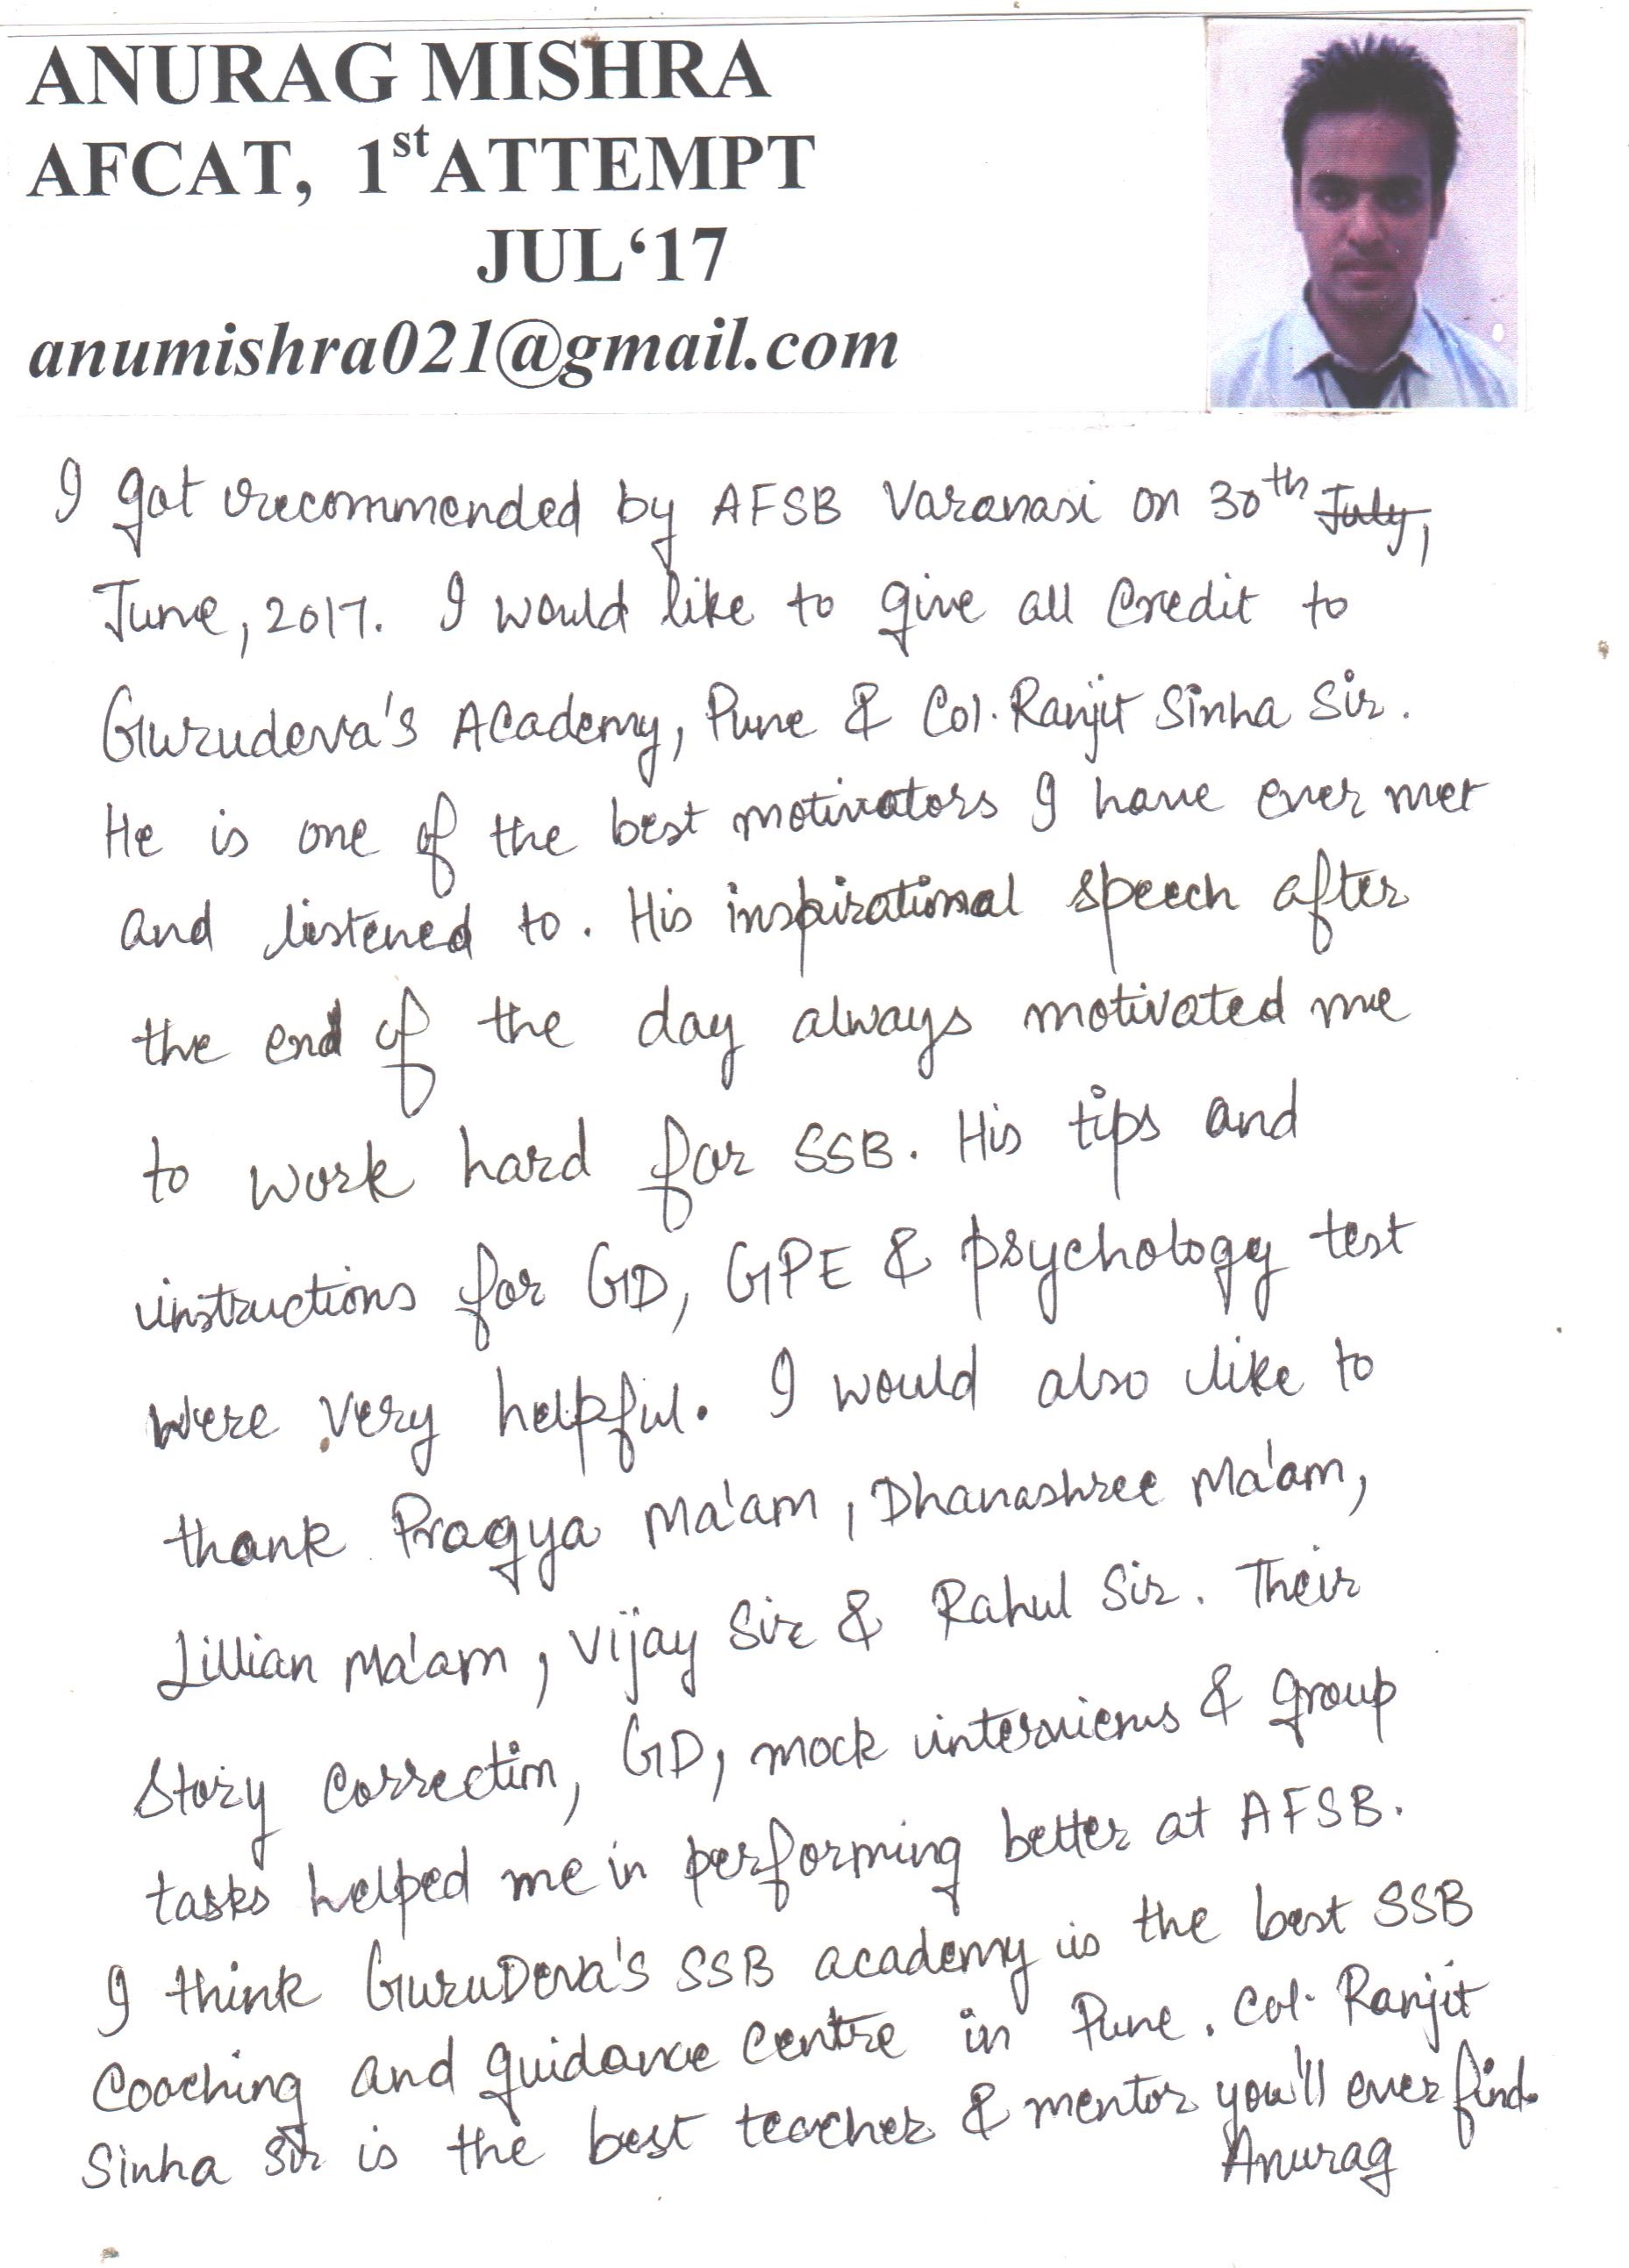 ANURAG MISHRA
AFCAT, 1st ATTEMPT
JUL‘17
anumishra021@gmail.com
I got recommended by AFSB Varanasi on 30th July,
June, 2017. I would like to give all credit to
Gurudeva's Academy, Pune & Col. Ranjit Sinha Sir.
He is one of the best motivators I have ever met
and listened to. His inspirational speech after
the end of the day always motivated me
to work hard for SSB. His tips and
instructions for GD, GPE & psychology test
were very helpful. I would also like to
thank Pragya Ma'am, Dhanashree Ma'am,
Lillian Ma'am, Vijay Sir & Rahul Sir. Their
story correction, GD, mock interviews & group
tasks helped me in performing better at AFSB.
I think GuruDeva's SSB academy is the best SSB
coaching and guidance centre in Pune. Col. Ranjit
Sinha Sir is the best teacher & mentor you'll ever find.
Anurag